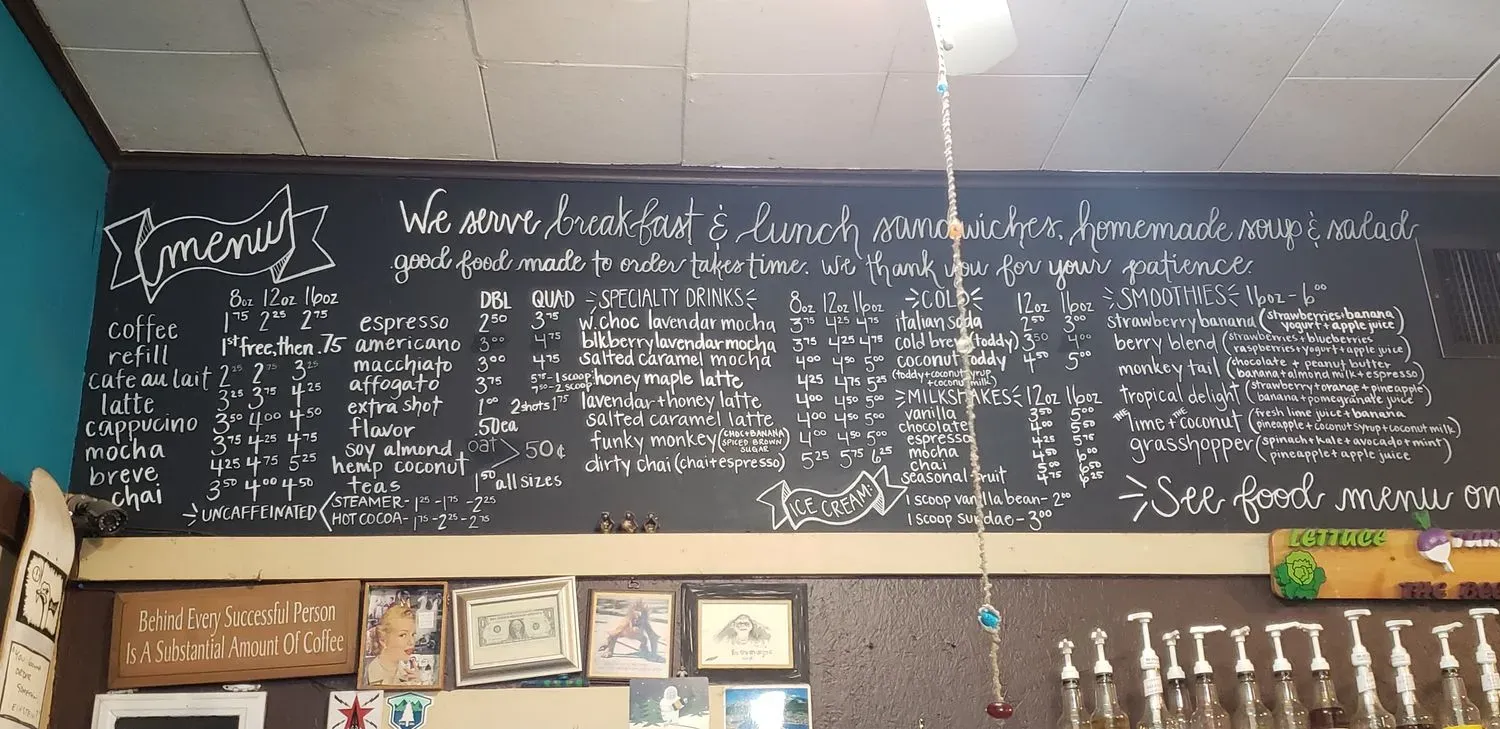 menu
We serve breakfast & lunch sandwiches, homemade soup & salad
good food made to order takes time. we thank you for your patience.
8oz 12oz 16oz
coffee 1.75 2.25 2.75
refill 1st free, then .75
cafe au lait 2.25 2.75 3.25
latte 3.25 3.75 4.25
cappucino 3.50 4.00 4.50
mocha 3.75 4.25 4.75
breve 4.25 4.75 5.25
chai 3.50 4.00 4.50
UNCAFFEINATED
STEAMER- 1.25 -1.75 -2.25
HOT COCOA- 1.75 -2.25 -2.75
DBL QUAD
espresso 2.50 3.75
americano 3.00 4.75
macchiato 3.00 4.75
affogato 3.75 5.75-1 scoop
7.50-2 scoop
extra shot 1.00 2 shots 1.75
flavor .50ea
soy almond oat
hemp coconut 50¢
teas 1.50 all sizes
SPECIALTY DRINKS 8oz 12oz 16oz
w.choc lavendar mocha 3.75 4.25 4.75
blkberry lavendar mocha 3.75 4.25 4.75
salted caramel mocha 4.00 4.50 5.00
honey maple latte 4.25 4.75 5.25
lavendar+honey latte 4.00 4.50 5.00
salted caramel latte 4.00 4.50 5.00
funky monkey (CHOC+BANANA SPICED BROWN SUGAR) 4.00 4.50 5.00
dirty chai (chai+espresso) 5.25 5.75 6.25
ICE CREAM:
1 scoop vanilla bean- 2.00
1 scoop sundae - 3.00
COLD 12oz 16oz
italian soda 2.50 3.00
cold brew (toddy) 3.50 4.00
coconut toddy 4.50 5.00
(toddy+coconut syrup
+coconut milk)
MILKSHAKES 12oz 16oz
vanilla 3.50 5.00
chocolate 4.00 5.00
espresso 4.25 5.75
mocha 4.50 6.00
chai 5.00 6.50
seasonal fruit 4.75 6.25
SMOOTHIES 16oz - 6.00
strawberry banana (strawberries+banana
yogurt + apple juice)
berry blend (strawberries+blueberries
raspberries+yogurt+apple juice)
monkey tail (chocolate + peanut butter
banana+almond milk+espresso)
tropical delight (strawberry+orange+pineapple
banana+pomegranate juice)
THE lime + THE coconut (fresh lime juice+banana
pineapple+coconut syrup+coconut milk)
grasshopper (spinach+kale+avocado+mint
pineapple+apple juice)
See food menu on
LETTUCE
Behind Every Successful Person
Is A Substantial Amount Of Coffee